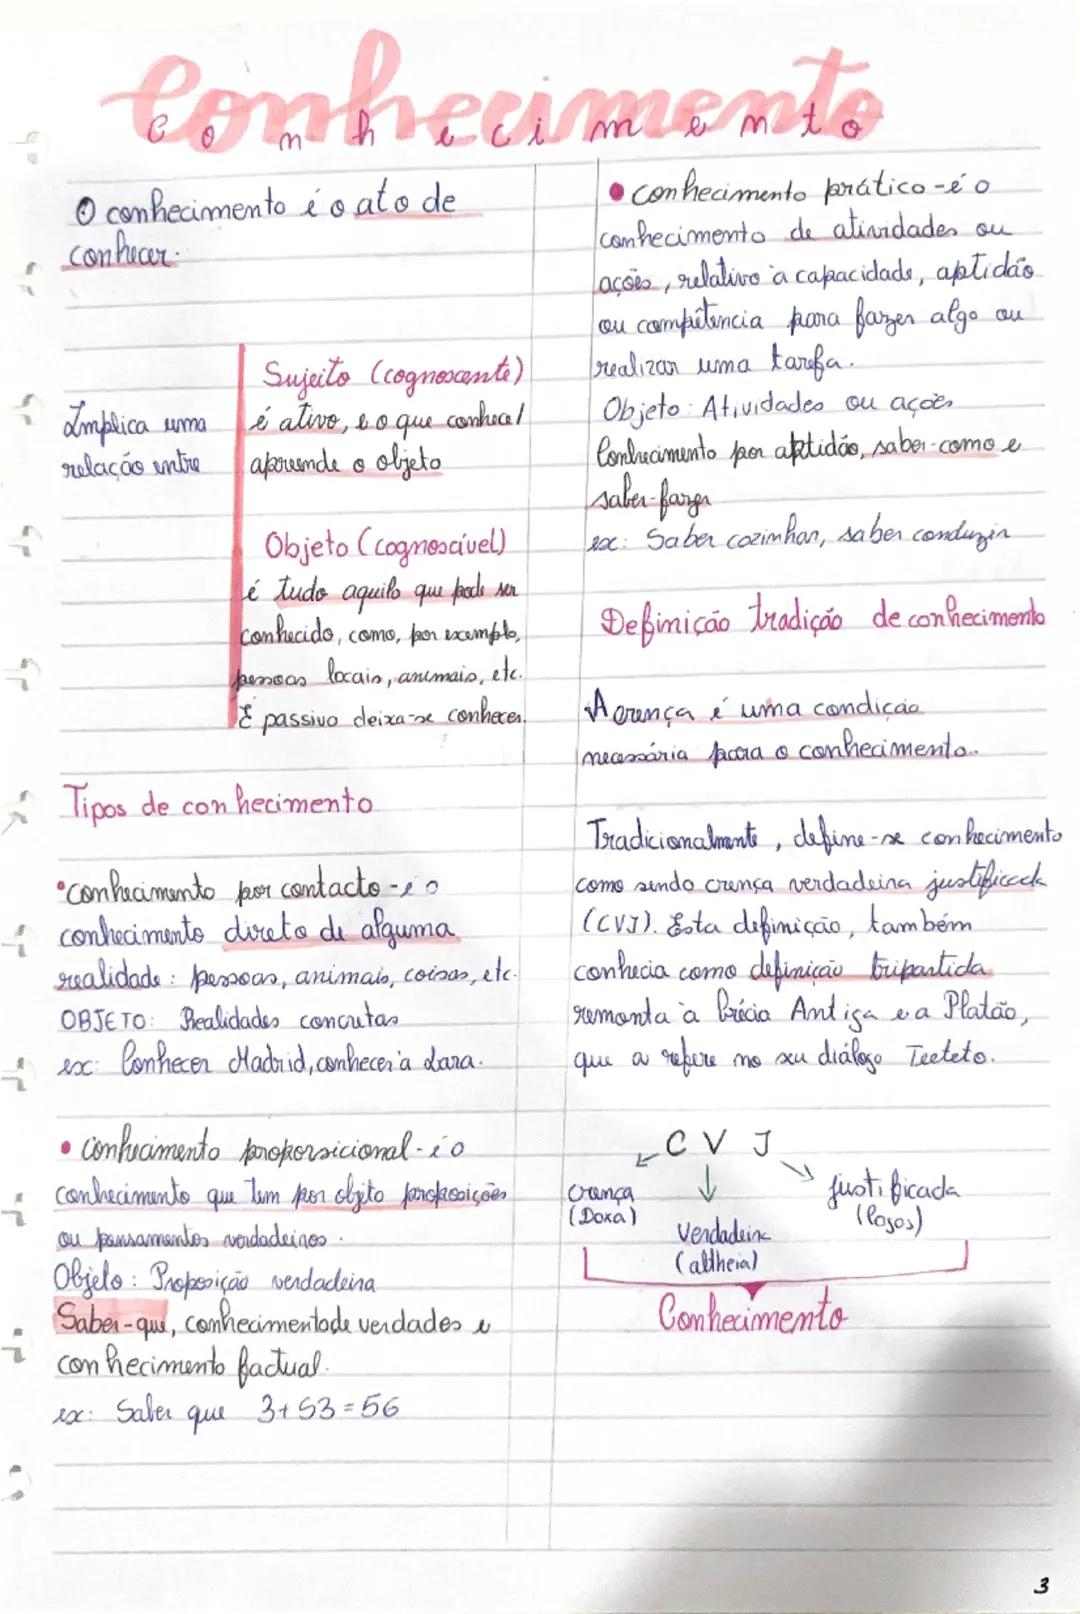 Conhecimento
C o n h e c i m e n t o
O conhecimento é o ato de
conhecer.
Implica uma
relação entre
Sujeito (cognoscente)
é ativo, é o que conhece/
apreende o objeto
Objeto (cognoscível)
é tudo aquilo que pode ser
conhecido, como, por exemplo,
pessoas locais, animais, etc.
É passivo deixa-se conhecer.
Tipos de conhecimento
•conhecimento por contacto - é o
conhecimento direto de alguma
realidade: pessoas, animais, coisas, etc.
OBJETO: Realidades concretas
ex: Conhecer Madrid, conhecer a Lara.
• conhecimento proporsicional - é o
conhecimento que tem por objeto proposições
ou pensamentos verdadeiros.
Objeto: Proposição verdadeira
Saber-que, conhecimento de verdades e
conhecimento factual.
ex: Saber que 3+53=56
• conhecimento prático - é o
conhecimento de atividades ou
ações, relativo à capacidade, aptidão
ou competência para fazer algo ou
realizar uma tarefa.
Objeto: Atividades ou ações
Conhecimento por aptidão, saber-como e
saber-fazer
ex: Saber cozinhar, saber conduzir
Definição tradição de conhecimento
A crença é uma condição
necessária para o conhecimento.
Tradicionalmente, define-se conhecimento
como sendo crença verdadeira justificada
(CVJ). Esta definição, também
conhecia como definição tripartida
remonta à Grécia Antiga e a Platão,
que a refere no seu diálogo Teeteto.
C V J
Crença
(Doxa)
Verdadeira
(altheia)
justificada
(logos)
Conhecimento
3